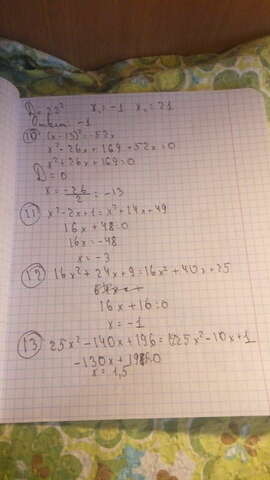 D=22² x₁=-1 x₂=21
-1
10) (x-13)²=-52x
x²-26x+169+52x=0
x²+26x+169=0
D=0
x=-26/2=-13
11) x²-2x+1=x²+14x+49
16x+48=0
16x=-48
x=-3
12) 16x²+24x+9=16x²+40x+25
16x+16=0
x=-1
13) 25x²-140x+196=25x²-10x+1
-130x+195=0
x=1,5